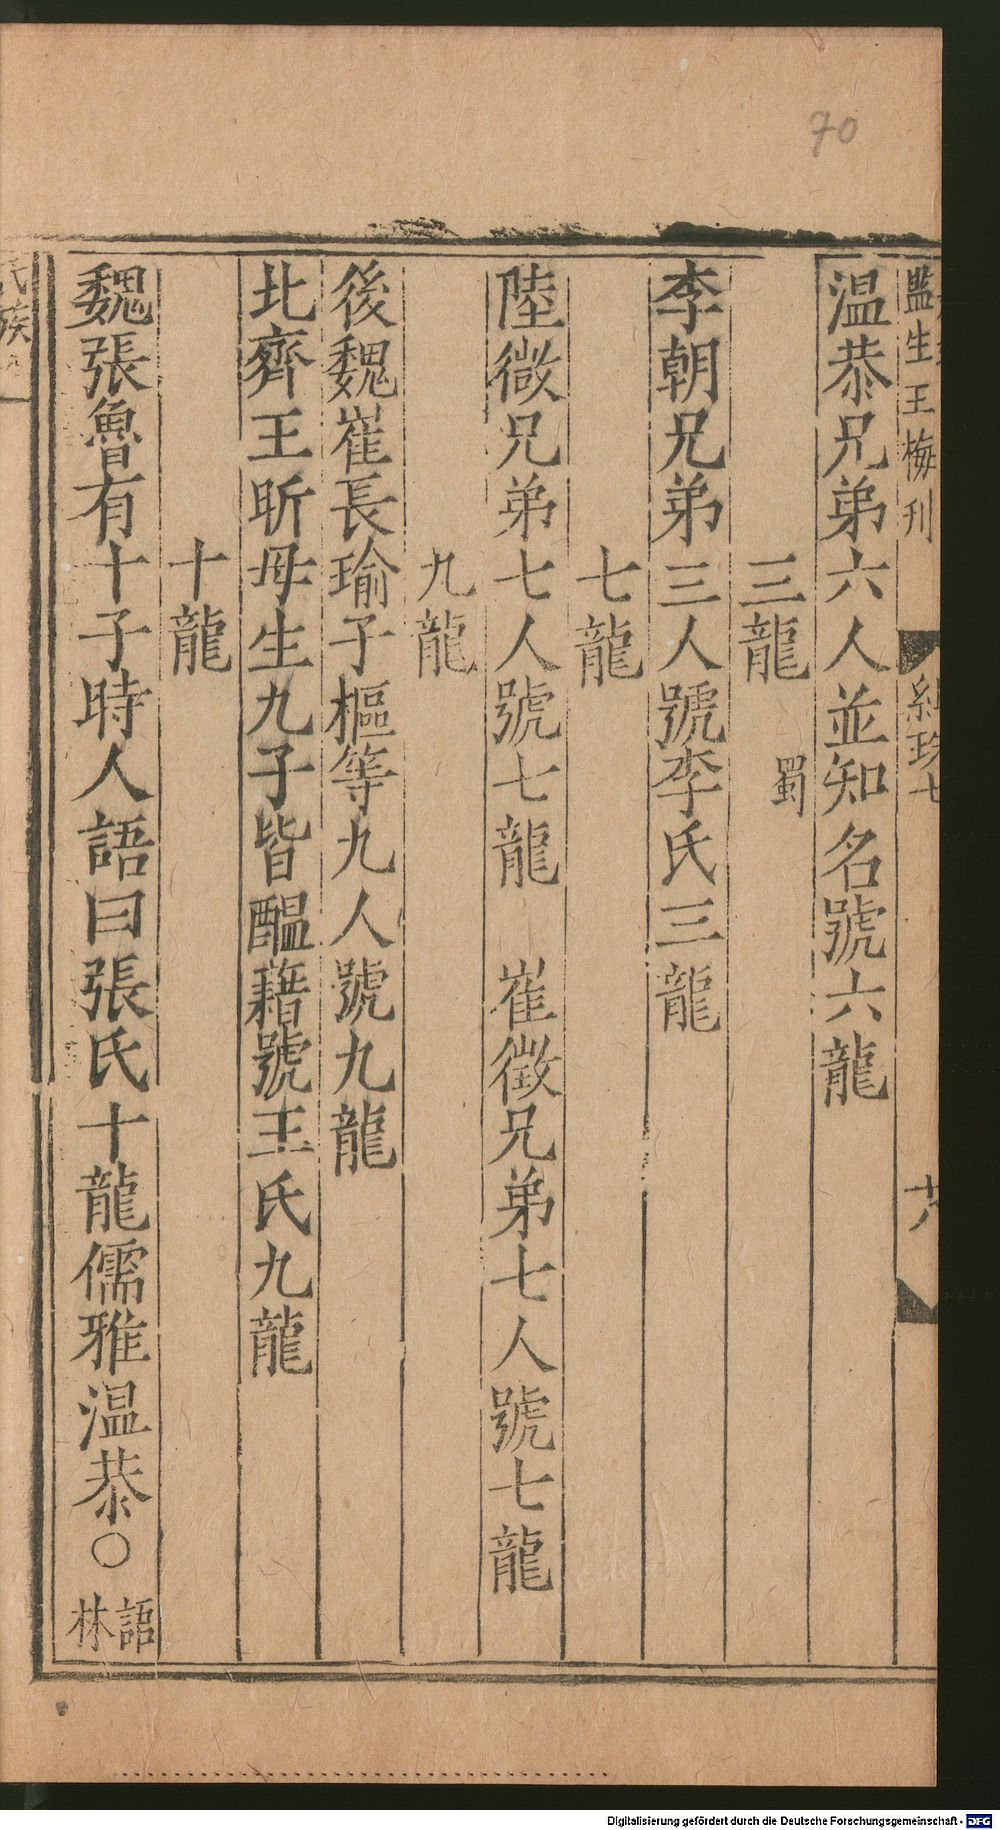 70
監生王梅刊
組珠七
十八
温恭兄弟六人並知名號六龍
三龍 蜀
李朝兄弟三人號李氏三龍
七龍
陸徴兄弟七人號七龍 崔徴兄弟七人號七龍
九龍
後魏崔長瑜子樞等九人號九龍
北齊王昕母生九子皆醞藉號王氏九龍
十龍
魏張魯有十子時人語曰張氏十龍儒雅温恭○語林
氏族
Digitalisierung gefördert durch die Deutsche Forschungsgemeinschaft - DFG